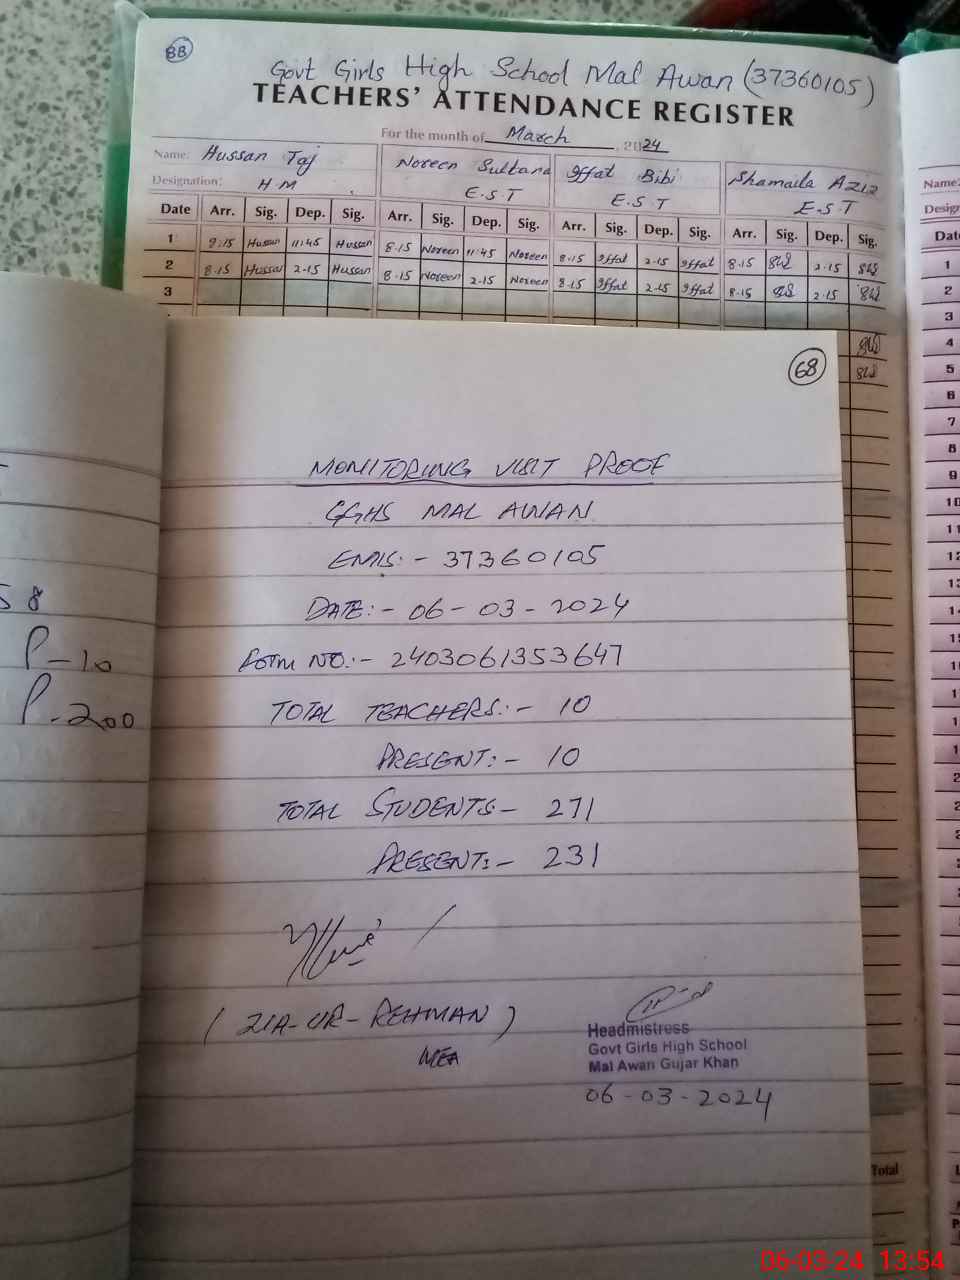 88
Govt Girls High School Mal Awan (37360105)
TEACHERS' ATTENDANCE REGISTER
For the month of March, 2024
Name: Hussan Taj Noreen Sultana Iffat Bibi Shamaila Aziz
Designation: H.M E.S.T E.S.T E.S.T
Date Arr. Sig. Dep. Sig. Arr. Sig. Dep. Sig. Arr. Sig. Dep. Sig. Arr. Sig. Dep. Sig.
1 8:15 Hussan 11:45 Hussan 8.15 Noreen 11.45 Noreen 8.15 Iffat 2.15 Iffat 8.15 2.15
2 8.15 Hussan 2.15 Hussan 8.15 Noreen 2.15 Noreen 8.15 Iffat 2.15 Iffat 8.15 2.15
3
68
MONITORING VISIT PROOF
GGHS MAL AWAN
EMIS:- 37360105
DATE:- 06-03-2024
Form NO.:- 2403061353647
TOTAL TEACHERS:- 10
PRESENT:- 10
TOTAL STUDENTS- 271
PRESENT:- 231
(ZIA-UR-REHMAN)
MEA
Headmistress
Govt Girls High School
Mal Awan Gujar Khan
06-03-2024
58
P-10
P-200
Total
Name:
Date
1
2
3
4
5
6
7
8
9
10
11
12
06-03-24 13:54